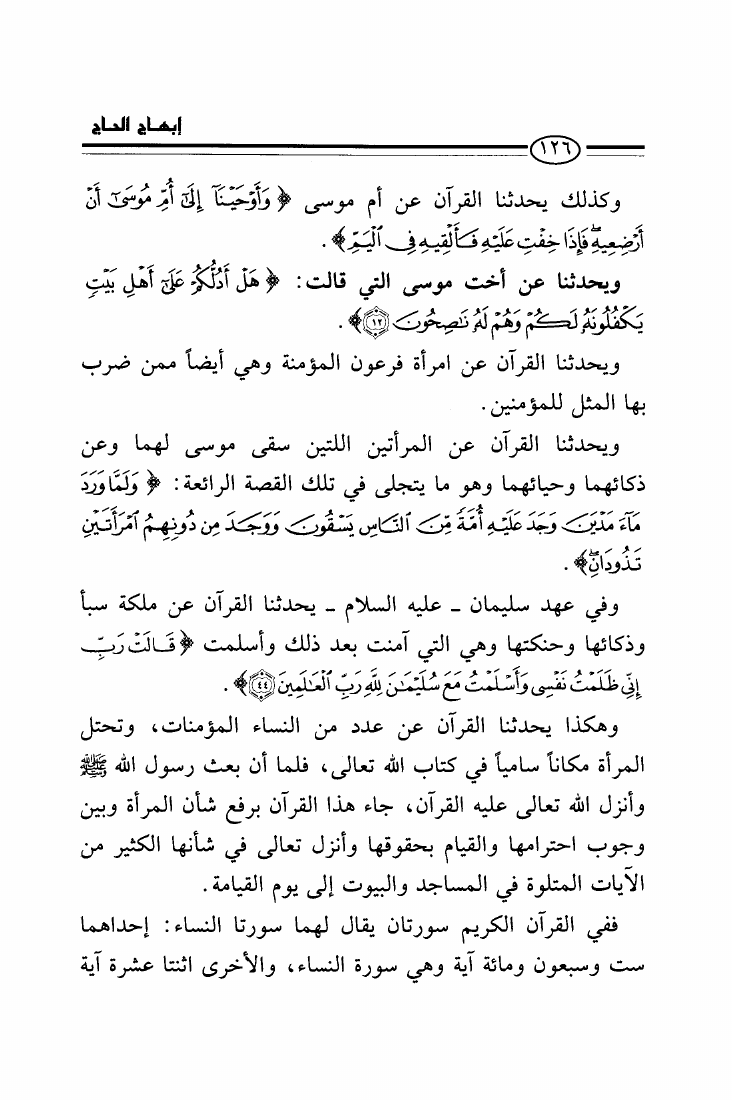 إبهاج الحاج
١٢٦
وكذلك يحدثنا القرآن عن أم موسى ﴿ وَأَوْحَيْنَآ إِلَىٰٓ أُمِّ مُوسَىٰٓ أَنْ
أَرْضِعِيهِ ۖ فَإِذَا خِفْتِ عَلَيْهِ فَأَلْقِيهِ فِى ٱلْيَمِّ﴾ .
ويحدثنا عن أخت موسى التي قالت: ﴿ هَلْ أَدُلُّكُمْ عَلَىٰٓ أَهْلِ بَيْتٍ
يَكْفُلُونَهُۥ لَكُمْ وَهُمْ لَهُۥ نَٰصِحُونَ ﴿١٢﴾﴾ .
ويحدثنا القرآن عن امرأة فرعون المؤمنة وهي أيضاً ممن ضرب
بها المثل للمؤمنين.
ويحدثنا القرآن عن المرأتين اللتين سقى موسى لهما وعن
ذكائهما وحيائهما وهو ما يتجلى في تلك القصة الرائعة: ﴿ وَلَمَّا وَرَدَ
مَآءَ مَدْيَنَ وَجَدَ عَلَيْهِ أُمَّةً مِّنَ ٱلنَّاسِ يَسْقُونَ وَوَجَدَ مِن دُونِهِمُ ٱمْرَأَتَيْنِ
تَذُودَانِ ۖ﴾ .
وفي عهد سليمان ـ عليه السلام ـ يحدثنا القرآن عن ملكة سبأ
وذكائها وحنكتها وهي التي آمنت بعد ذلك وأسلمت ﴿ قَالَتْ رَبِّ
إِنِّى ظَلَمْتُ نَفْسِى وَأَسْلَمْتُ مَعَ سُلَيْمَٰنَ لِلَّهِ رَبِّ ٱلْعَٰلَمِينَ ﴿٤٤﴾﴾ .
وهكذا يحدثنا القرآن عن عدد من النساء المؤمنات، وتحتل
المرأة مكاناً سامياً في كتاب الله تعالى، فلما أن بعث رسول الله ﷺ
وأنزل الله تعالى عليه القرآن، جاء هذا القرآن برفع شأن المرأة وبين
وجوب احترامها والقيام بحقوقها وأنزل تعالى في شأنها الكثير من
الآيات المتلوة في المساجد والبيوت إلى يوم القيامة.
ففي القرآن الكريم سورتان يقال لهما سورتا النساء: إحداهما
ست وسبعون ومائة آية وهي سورة النساء، والأخرى اثنتا عشرة آية